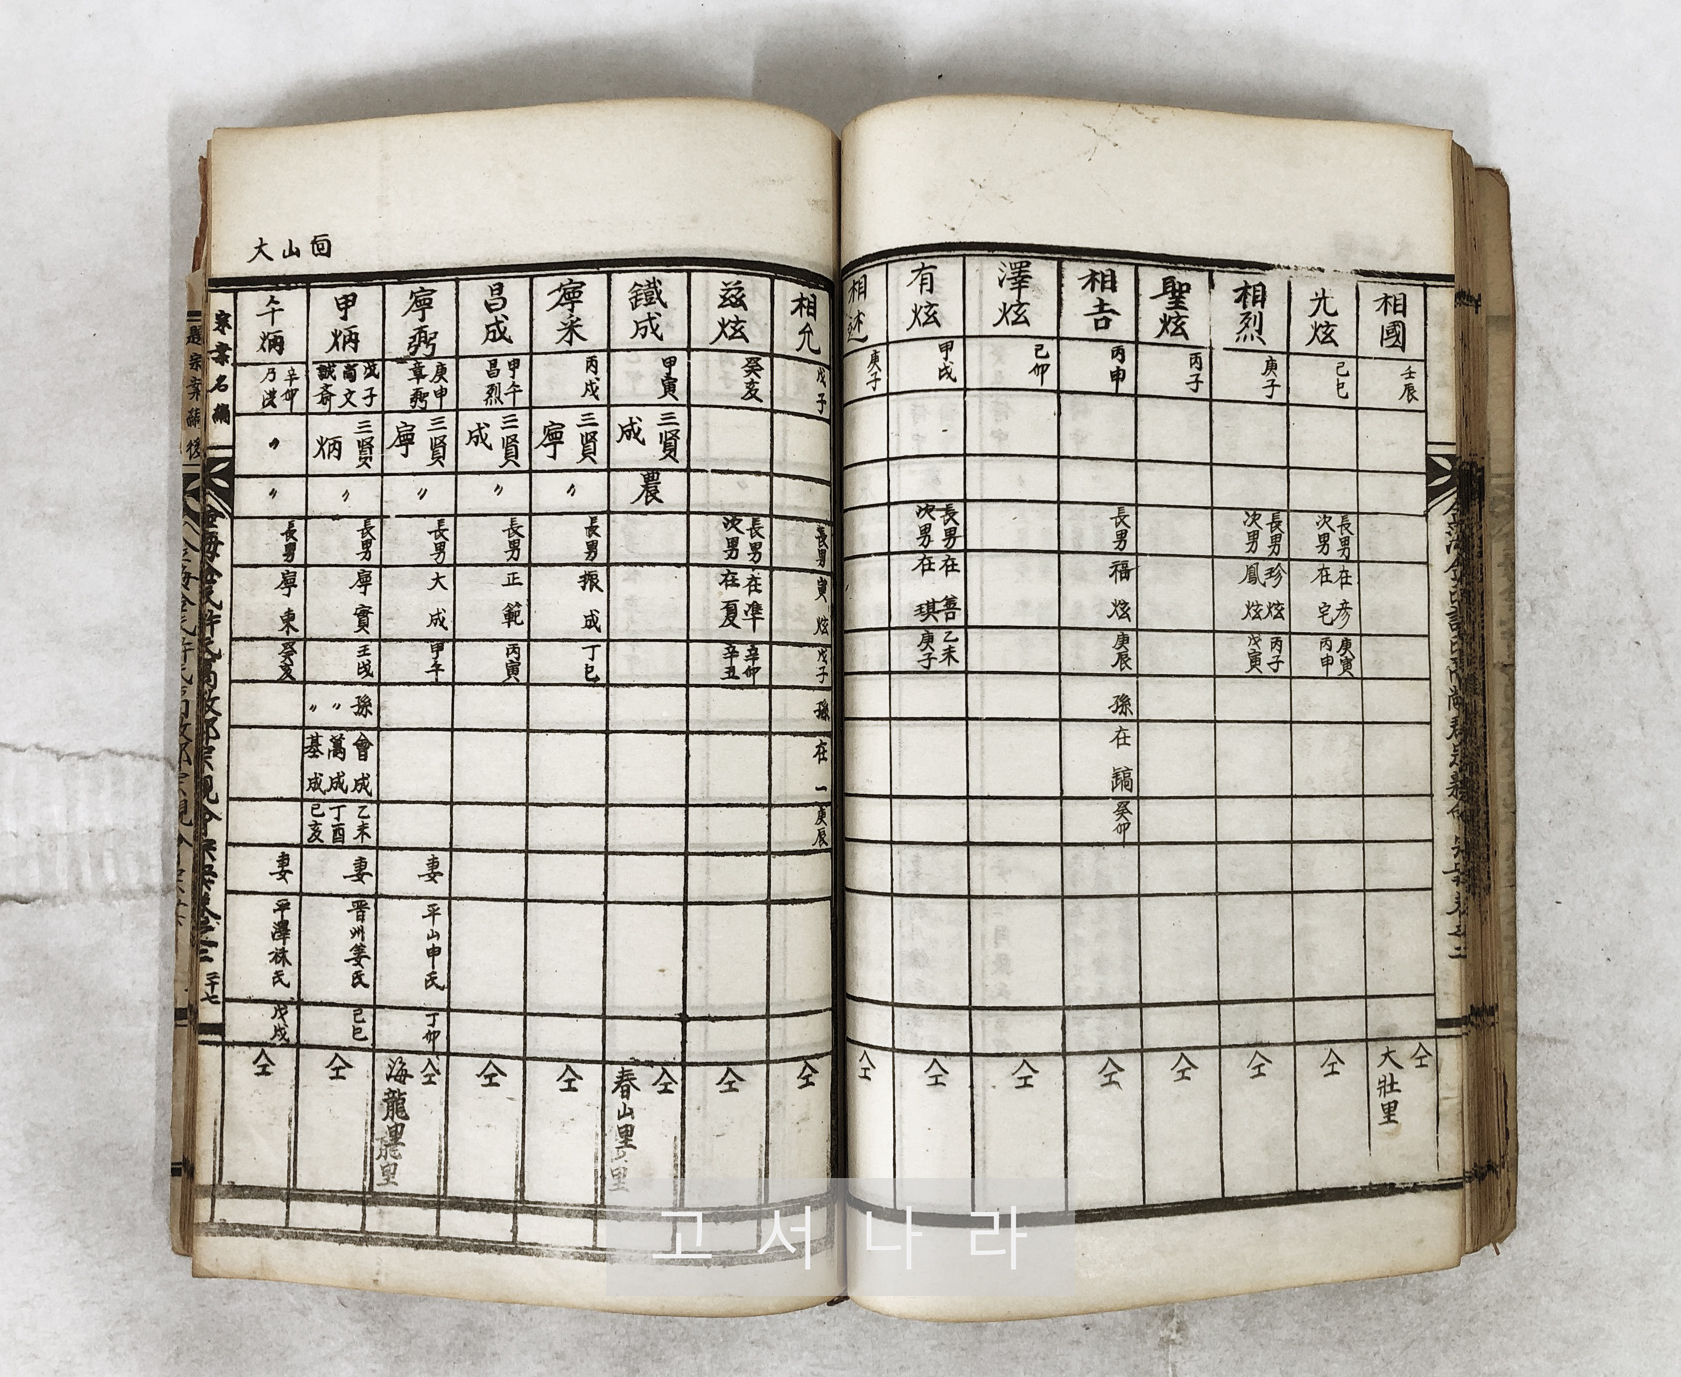 相國 壬辰 仝 大壯里
光炫 己巳 長男 在彦 庚寅 次男 在宅 丙申 仝
相烈 庚子 長男 珍炫 丙子 次男 鳳炫 戊寅 仝
聖炫 丙子 仝
相吉 丙申 長男 福炫 庚辰 孫 在鎬 癸卯 仝
澤炫 己卯 仝
有炫 甲戌 長男 在善 乙未 次男 在琪 庚子 仝
相述 庚子 仝
相允 戊子 長男 寅炫 戊子 孫 在一 庚辰 仝
玆炫 癸亥 長男 在準 辛卯 次男 在夏 辛丑 仝
鐵成 甲寅 三賢 成 農 仝 春山里
寧采 丙戌 三賢 寧 〃 長男 振成 丁巳 仝
昌成 甲午 昌烈 三賢 成 〃 長男 正範 丙寅 仝
寧弼 庚申 章弼 三賢 寧 〃 長男 大成 甲午 妻 平山申氏 丁卯 仝 海龍里
甲炳 戊子 尚文 誠齋 三賢 炳 〃 長男 寧實 壬戌 孫 會成 乙未 〃 萬成 丁酉 〃 基成 己亥 妻 晋州姜氏 己巳 仝
午炳 辛卯 乃洪 〃 〃 長男 寧東 癸亥 妻 平澤林氏 戊戌 仝
大山面
宗案名編
고서나라